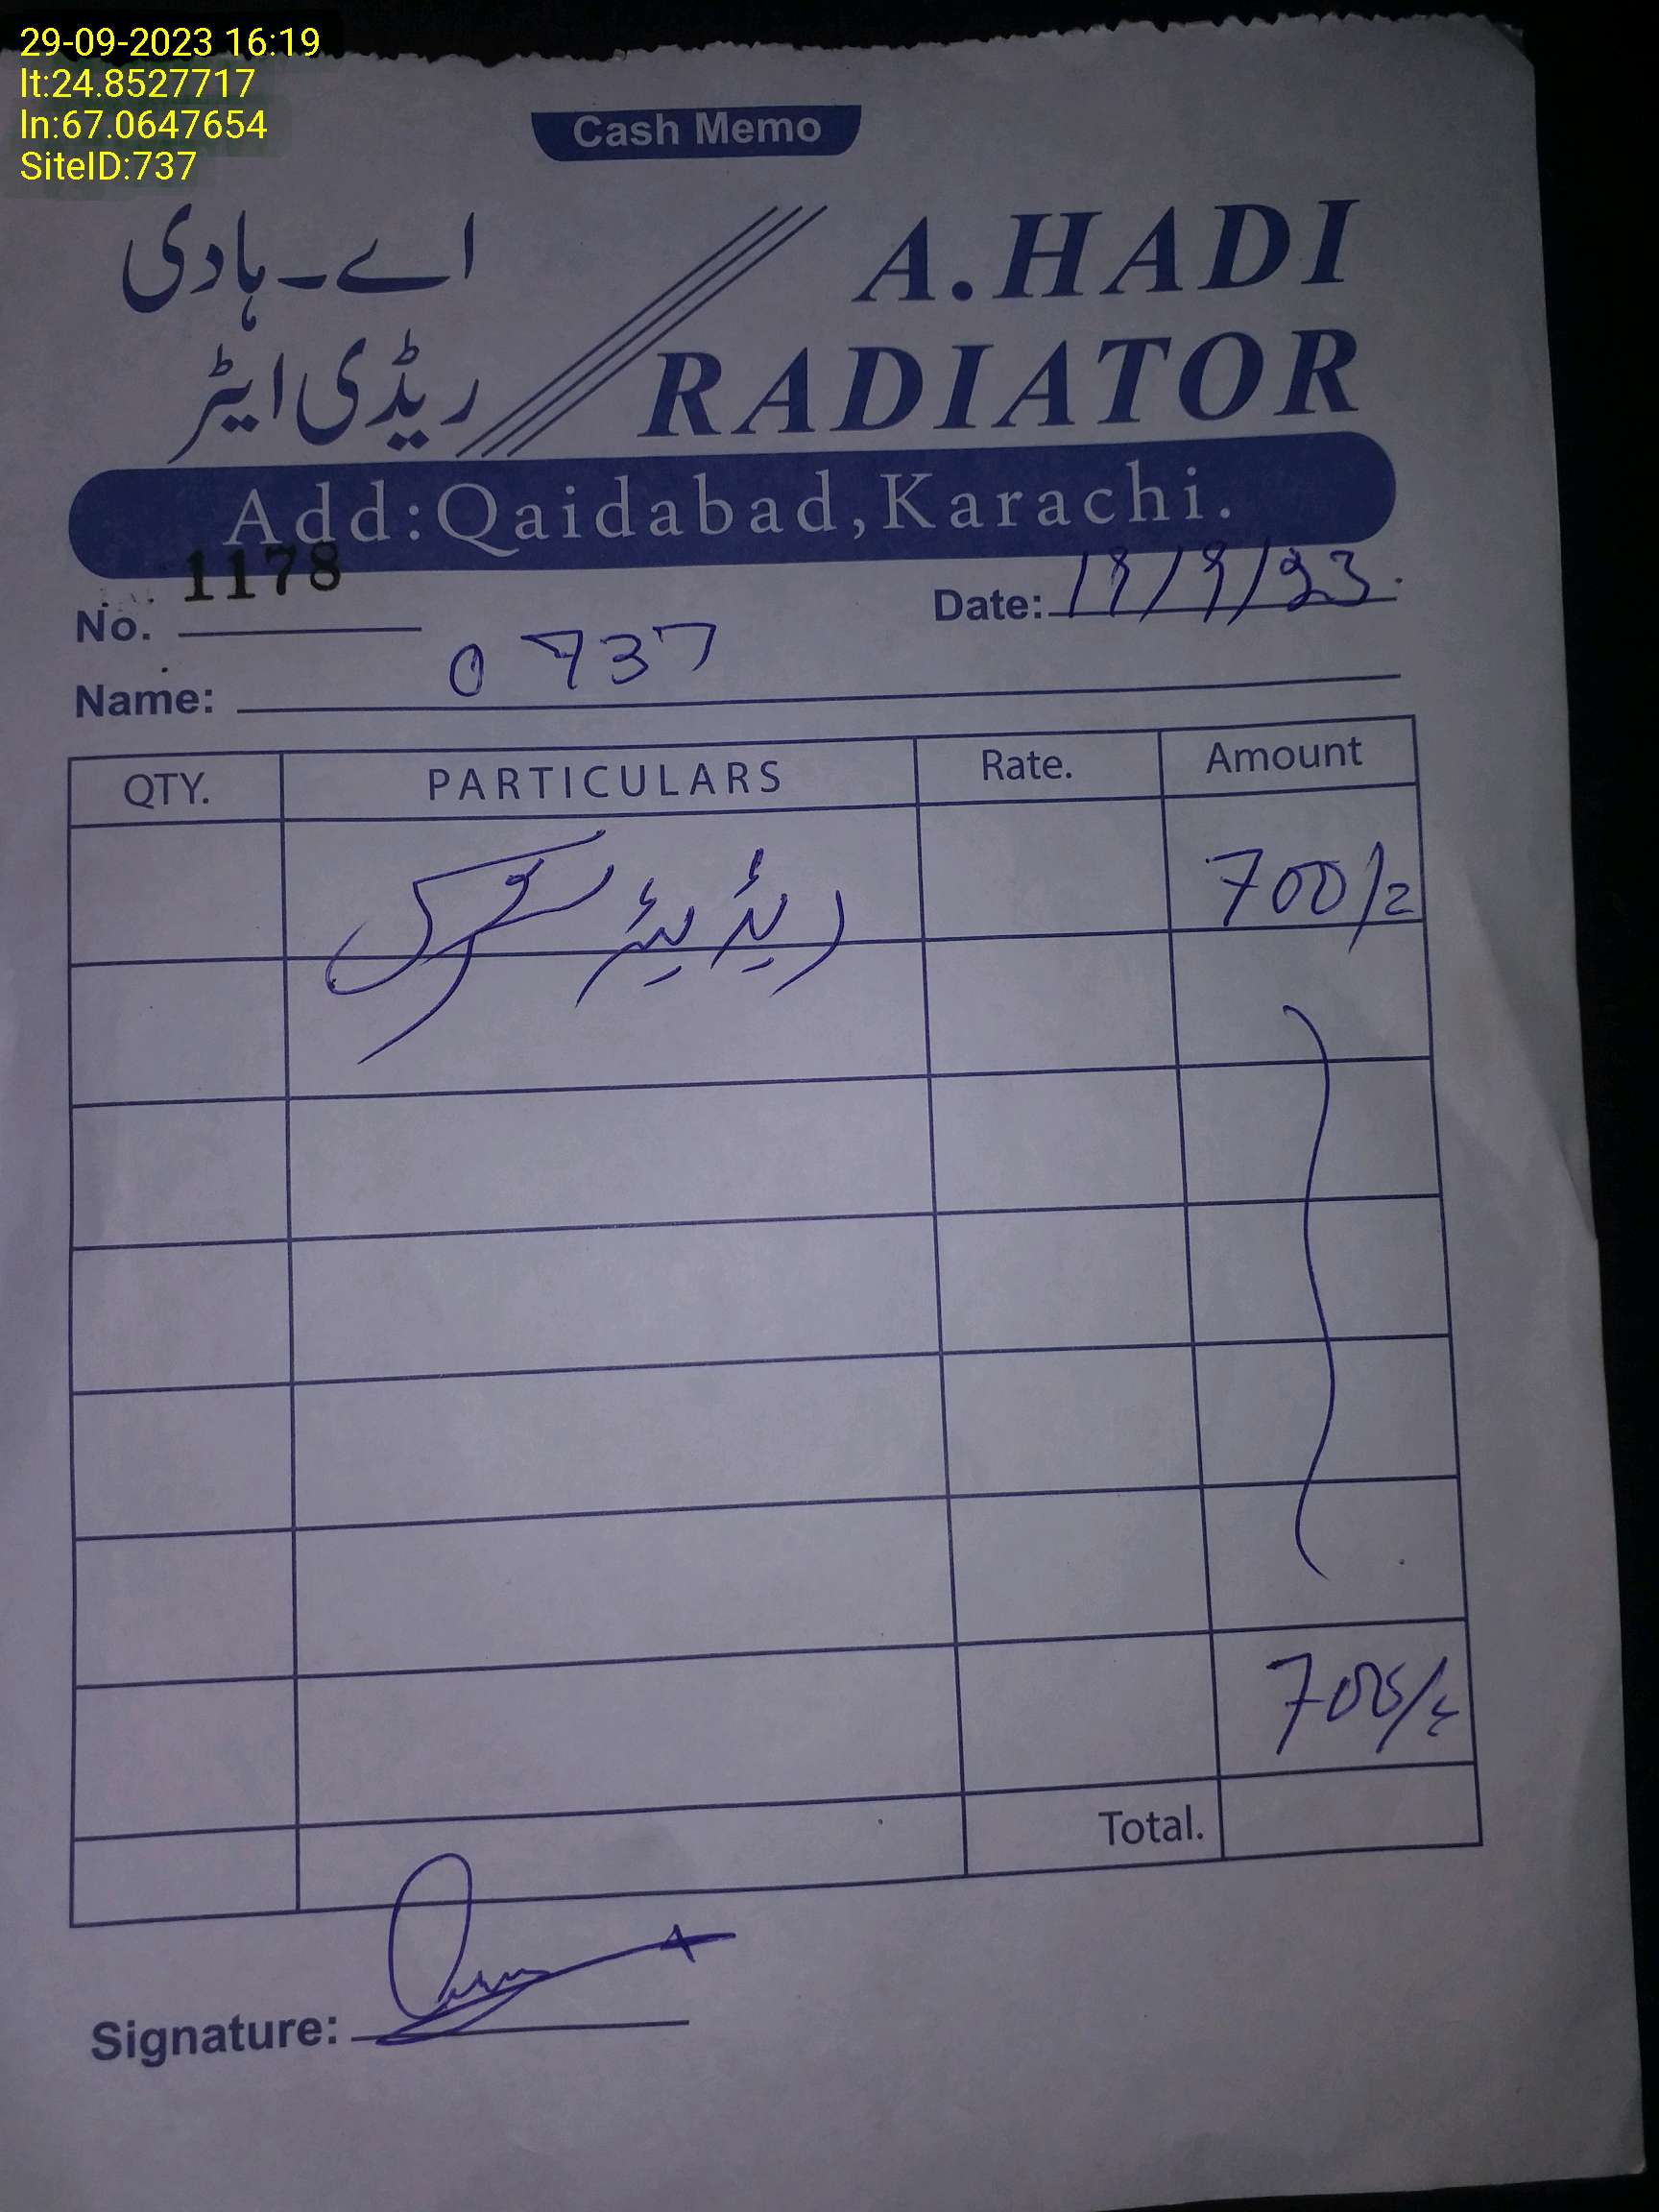 29-09-2023 16:19
lt:24.8527717
ln:67.0647654
SiteID:737
Cash Memo
اے۔ہادی
ریڈی ایٹر
A.HADI
RADIATOR
Add:Qaidabad,Karachi.
No. 1178
Date: 19/9/23
Name: 0737
QTY. PARTICULARS Rate. Amount
ریڈیٹر سروس 700/=
700/=
Total.
Signature: